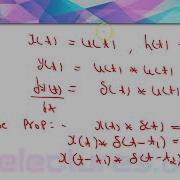 x(t) = u(t) , h(t) =
y(t) = u(t) * u(t)
dy(t)/dt = δ(t) * u(t)
Prop:- x(t) * δ(t) =
x(t) * δ(t-t₁) =
x(t-t₁) * δ(t-t₂) =